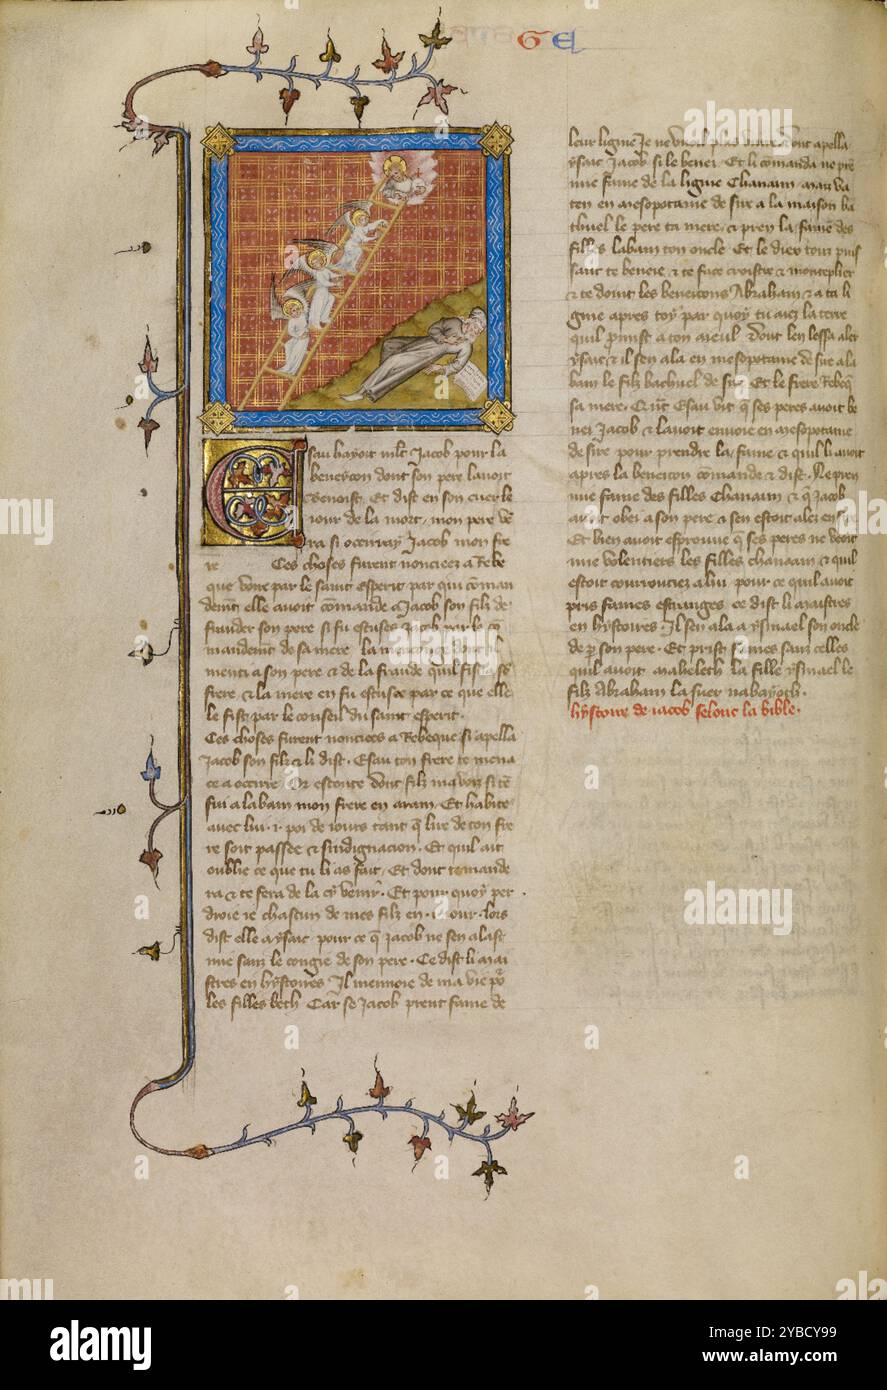 G E
sau hayoit mlt Jacob pour la
beneyçon dont son pere lauoit
Benoist. Et dist en son cuer le
iour de la mort mon pere ve
ra si occirray Jacob mon fre
re Ces choses furent nonciees a Rebe
que voire par le saint esperit par qui coman
dement elle auoit comande a Jacob son filz de
frauder son pere si fu escuses Jacob par le co
mandement de sa mere
menti a son pere & de la fraude quil fist a so
frere & la mere en fu escusee par ce que elle
le fist par le conseil du saint esperit.
Ces choses furent nonciees a Rebeque si apella
Jacob son filz & li dist. Esau ton frere te mena
ce a occirre Or escoute dont filz ma voiz si te
fui a labam mon frere en aram. Et habite
auec lui .i. poi de iours tant q lire de ton fre
re soit passee & sindignacion. Et quil ait
oublie ce que tu li as fait. Et dont te mande
ra & te fera de la cy venir. Et pour quoy per
droie ie chascun de mes filz en .i. iour. lors
dist elle a ysaac pour ce q Jacob ne sen alast
mie sanz le congie de son pere. Ce dist li mai
stres en hystoires Il mennoie de ma vie po
les filles heth Car se Jacob prent fame de
leur ligne Je ne vueil plus viure dont apella
ysaac Jacob si le benei. Et li comanda ne pre
mie fame de la ligne Chanaam mau va
ten en mesopotame de sire a la maison ba
thuel le pere ta mere, & pren la fame des
filles labam ton oncle Et le diex tout puis
sant te beneie, & te face croistre & monteplier
& te doint les beneicons Abraham & a ta li
gnie apres toy par quoy tu aiez la terre
quil pmist a ton aieul Dont len lessa aler
ysaac & il sen ala en mesopotame de sire a la
bam le filz bathuel de sire Et le frere Rebeq
sa mere. Quant Esau vit q ses peres auoit be
nei Jacob & lauoit enuoie en mesopotame
de sire pour prendre la fame & quil li auoit
apres la beneicon comande & dist. Ne pren
mie fame des filles Chanaam & q Jacob
auoit obei a son pere & sen estoit alez en sire
Et bien auoit esprouue q ses peres ne veoit
mie volentiers les filles chanaam & quil
estoit courrouciez a lui pour ce quil auoit
pris fames estranges ce dist li maistres
en hystoires Il sen ala a ysmael son oncle
de p son pere. Et prist fames sanz celles
quil auoit mabeleth la fille ysmael le
filz Abraham la suer nabayoth.
hystoire de iacob selonc la bible.
alamy
Image ID: 2YBCY99
www.alamy.com